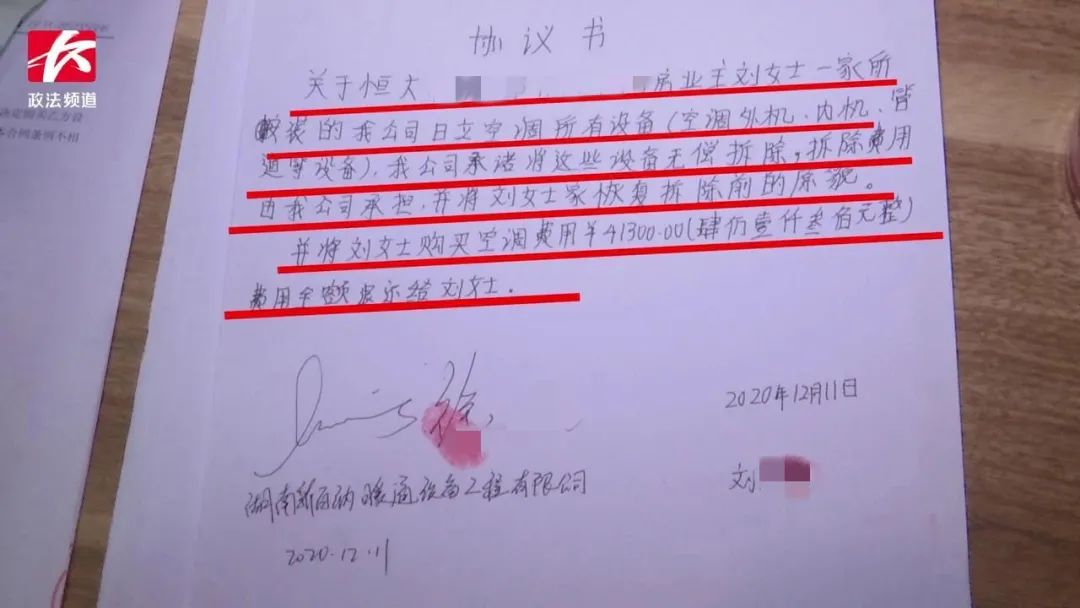 政法频道
决定购买乙方设
本合同条例不相
协议书
关于恒大 房业主刘女士一家所
安装的我公司日立空调所有设备(空调外机、内机、管
道等设备),我公司承诺将这些设备无偿拆除,拆除费用
由我公司承担,并将刘女士家恢复拆除前的原貌。
并将刘女士购买空调费用¥41300.00(肆仂壹仟叁佰元整)
费用全额退还给刘女士。
徐
2020年12月11日
湖南新百纳暖通设备工程有限公司
刘
2020.12.11